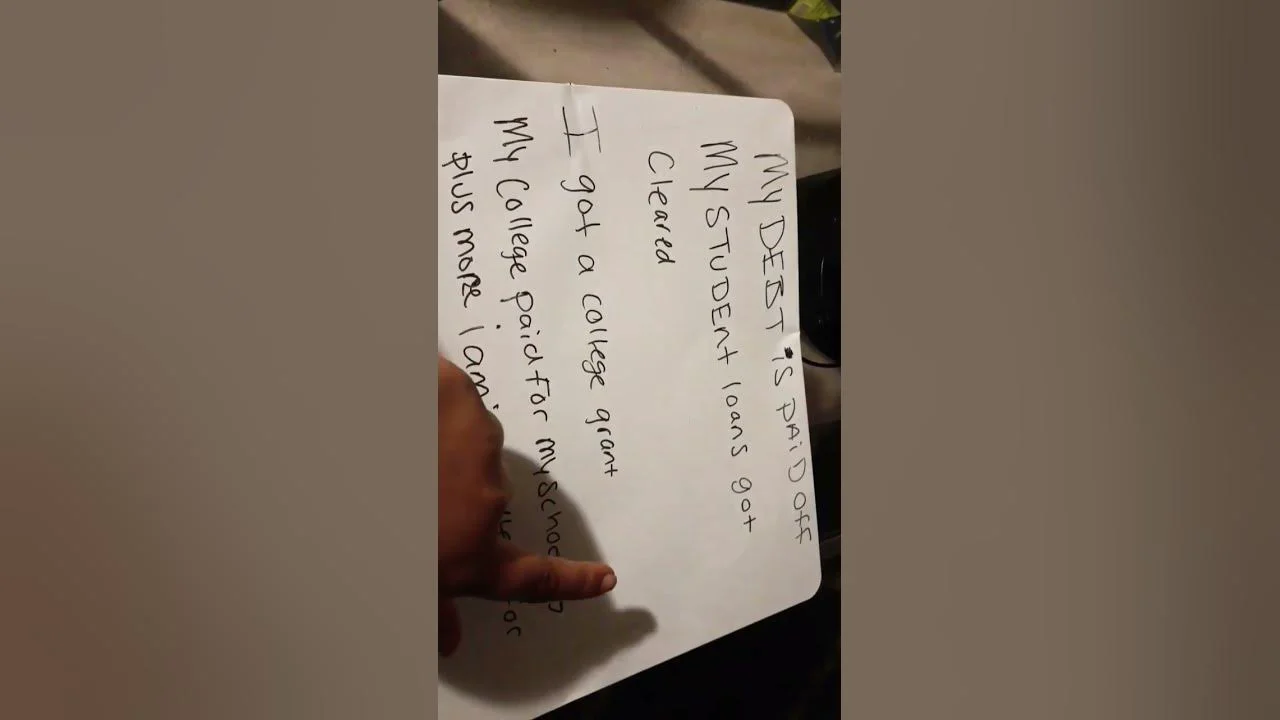 My DEBT is PAiD Off
My STUDEnt loans got
Cleared
I got a college grant
My College paid for my
plus more I am for